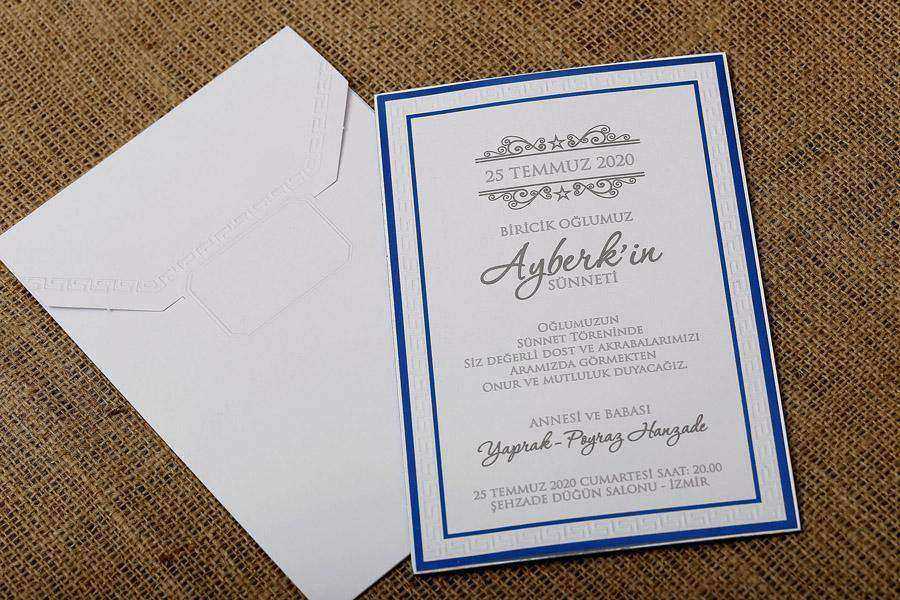 25 TEMMUZ 2020
BİRİCİK OĞLUMUZ
Ayberk'in
SÜNNETİ
OĞLUMUZUN
SÜNNET TÖRENİNDE
SİZ DEĞERLİ DOST VE AKRABALARIMIZI
ARAMIZDA GÖRMEKTEN
ONUR VE MUTLULUK DUYACAĞIZ.
ANNESİ VE BABASI
Yaprak - Poyraz Hanzade
25 TEMMUZ 2020 CUMARTESİ SAAT: 20.00
ŞEHZADE DÜĞÜN SALONU - İZMİR